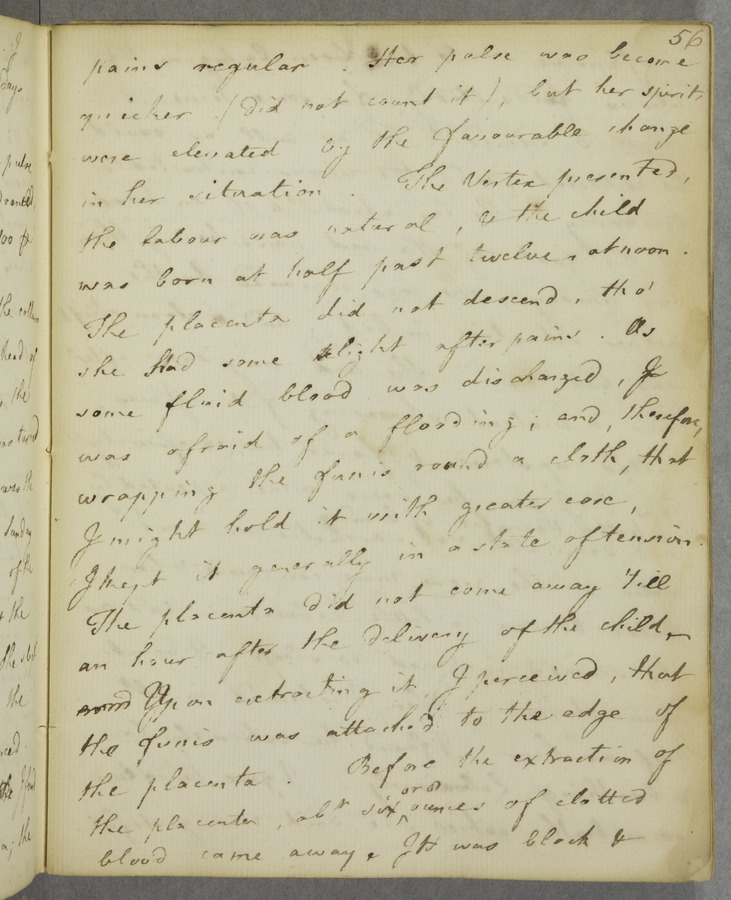 56
pains regular . Her pulse was become
quicker (did not count it), but her spirits
were elevated by the favourable change
in her situation . The Vertex presented,
the labour was natural, & the child
was born at half past twelve, at noon.
The placenta did not descend, tho'
she had some slight after pains. As
some fluid blood was discharged, I
was afraid of a flooding; and, therefore,
wrapping the funis round a cloth, that
I might hold it with greater ease,
I kept it generally in a state of tension.
The placenta did not come away 'till
an hour after the delivery of the child.
Upon extracting it, I perceived, that
the funis was attached to the edge of
the placenta . Before the extraction of
the placenta, abt six or 8 ounces of clotted
blood came away. It was black &